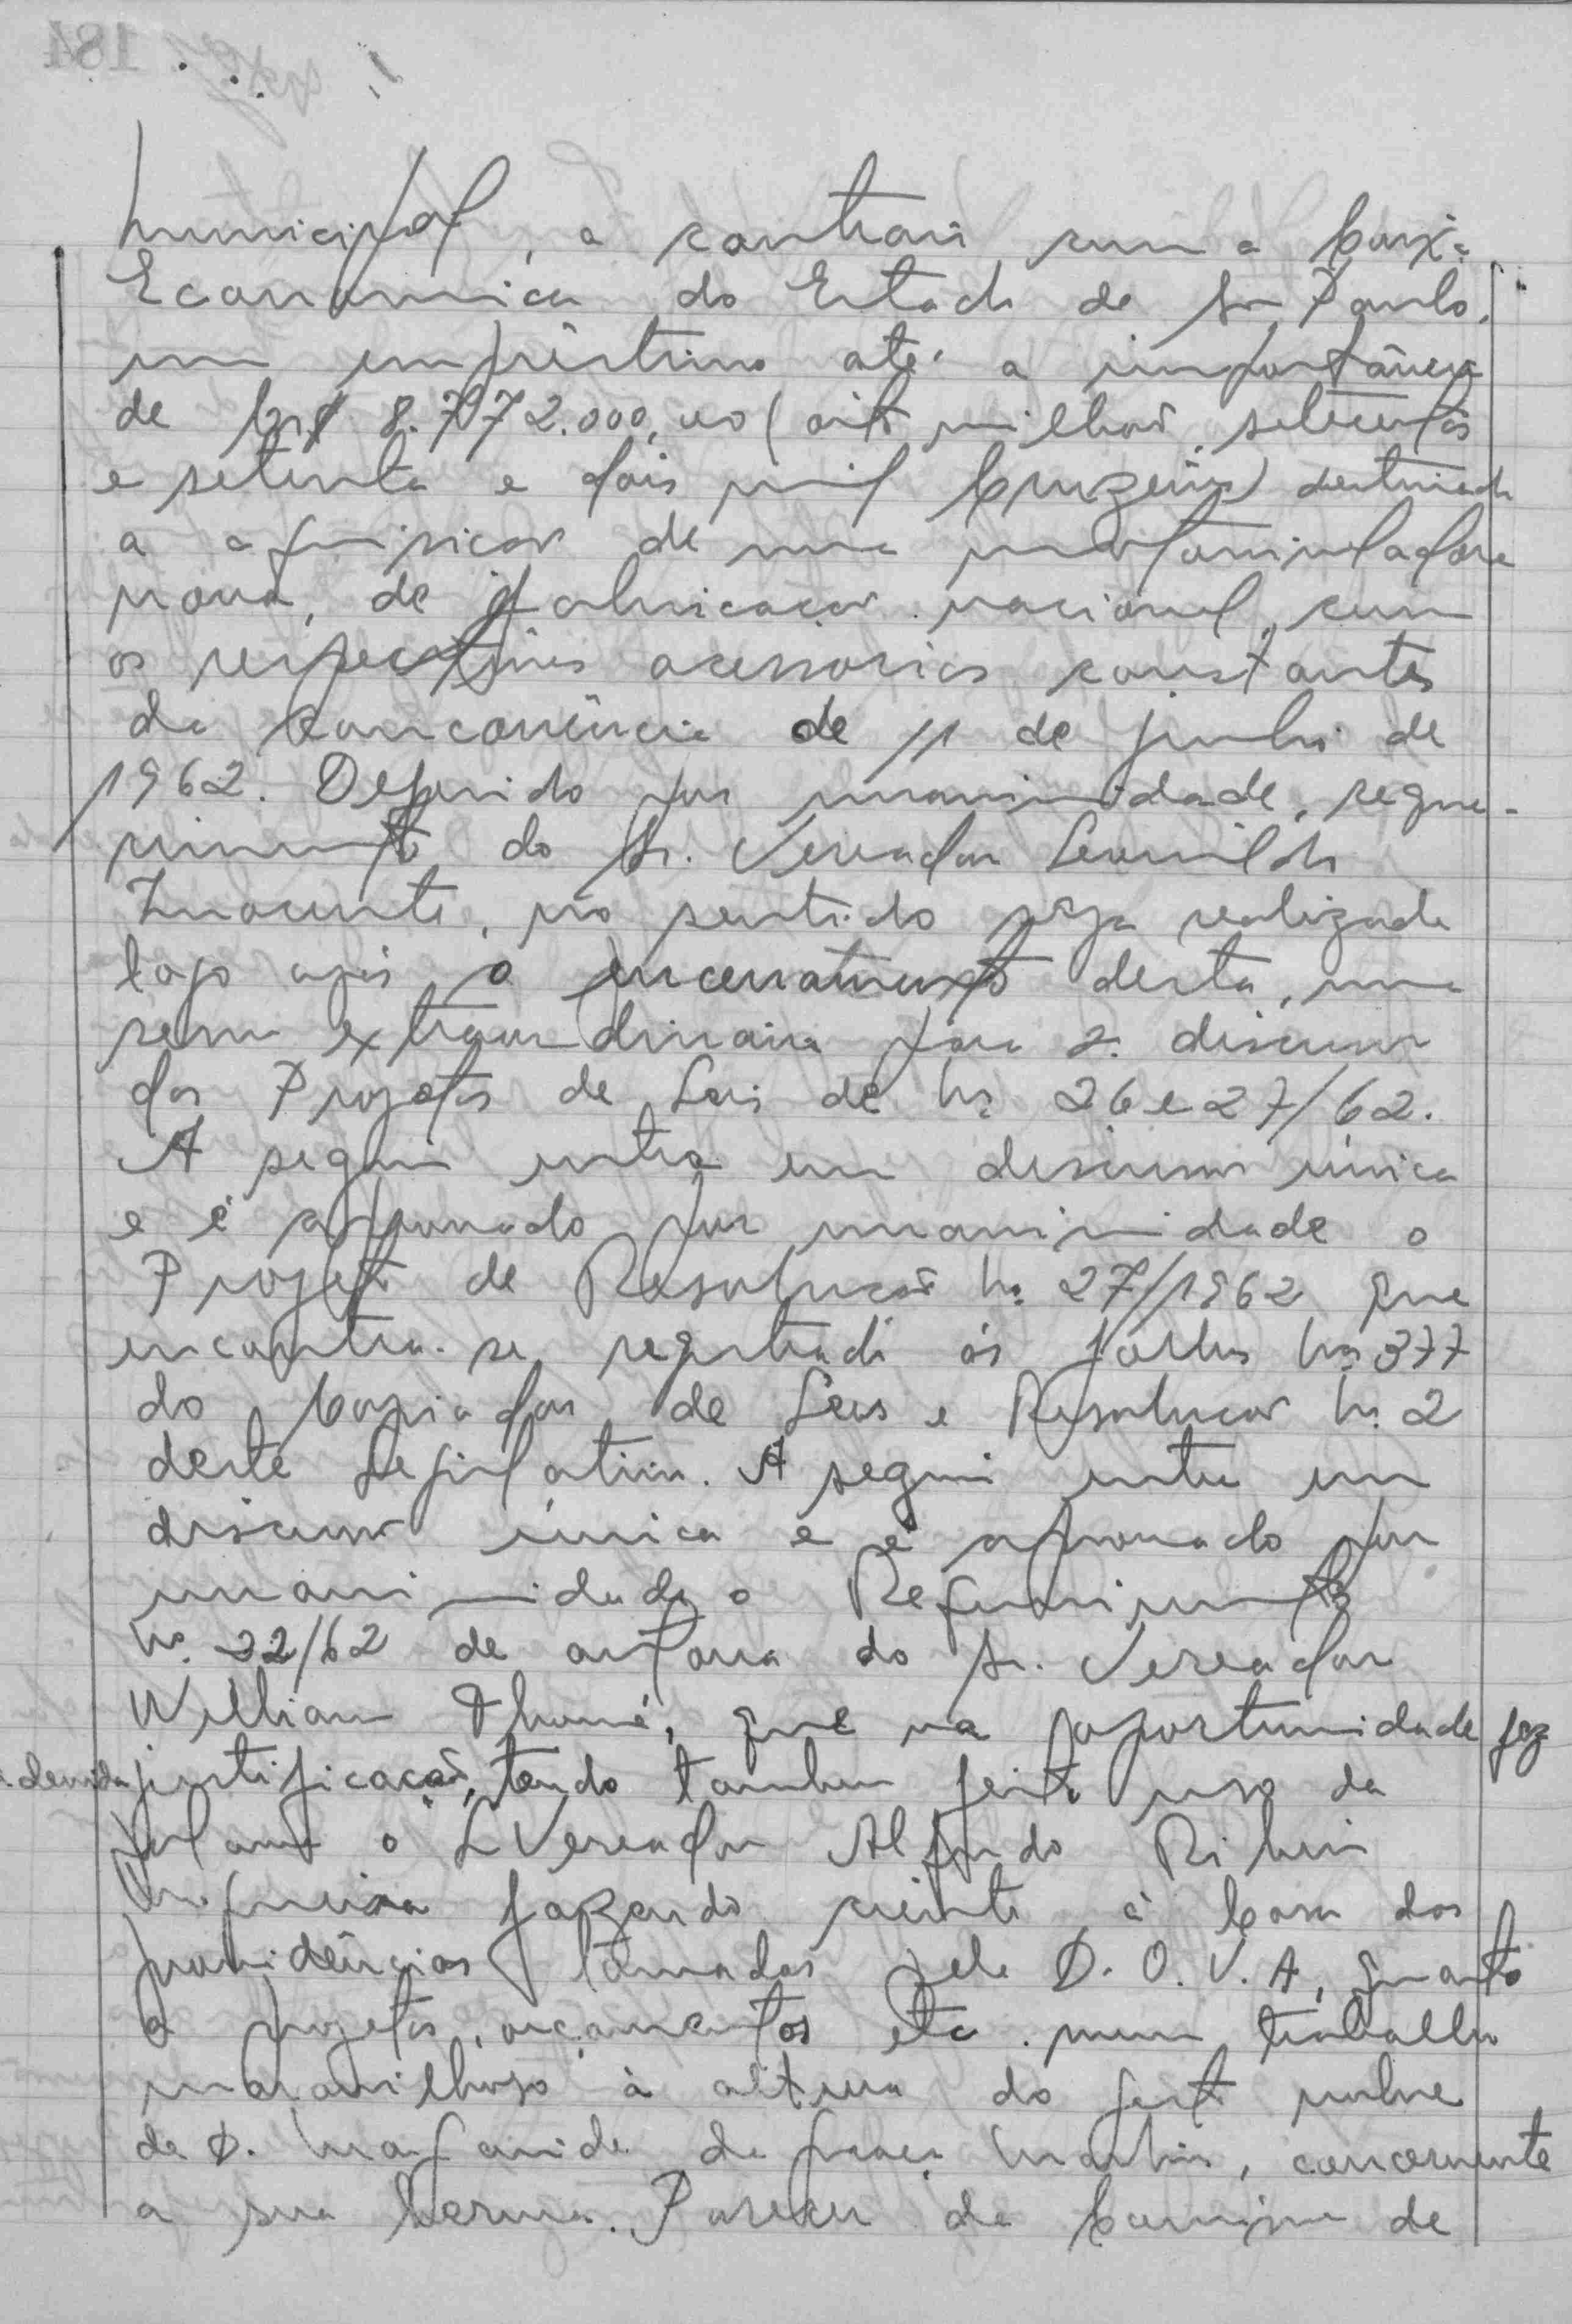 Municipal, a contrair com a Caixa
Economica do Estado de São Paulo,
um empréstimo até a importância
de Cr$ 8.772.000,00 (oito milhões, setecentos
e setenta e dois mil Cruzeiros) destinado
a aquisição de uma motoniveladora
nova, de fabricação nacional, com
os respectivos acessorios constantes
da concorrência de 11 de junho de
1962. Deferido por unanimidade, reque-
rimento do Sr. Vereador Leonildo
Inocente, no sentido seja realizada
logo após o encerramento desta, uma
sessão extraordinaria para 2ª discussão
dos Projetos de Leis de nº 26 e 27/62.
A seguir entra em discussão única
e é aprovado por unanimidade o
Projeto de Resolução nº 27/1962 que
encontra-se registrado ás folhas nº 377
do Copiador de Leis e Resolução nº 2
deste Legislativo. A seguir entra em
discussão única e é aprovado por
unanimidade o Requerimento
nº 22/62 de autoria do Sr. Vereador
William Thomé, que na oportunidade fez
a devida justificação, tendo tambem feito uso da
palavra o Sr Vereador Alfredo Ribeiro
fazendo ciente à Casa das
providências tomadas pelo D.O.V.A, quanto
a projetos, orçamentos etc. num trabalho
maravilhoso à altura do gesto nobre
de D. Margarida da Graça Martins, concernente
a sua herma. Parecer da Comissão de